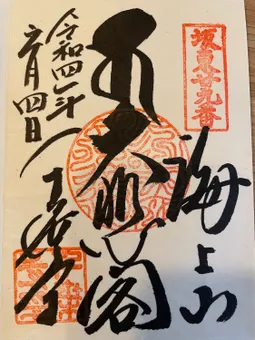 坂東廿九番
海上山
大悲閣
千葉寺
令和四年
六月四日